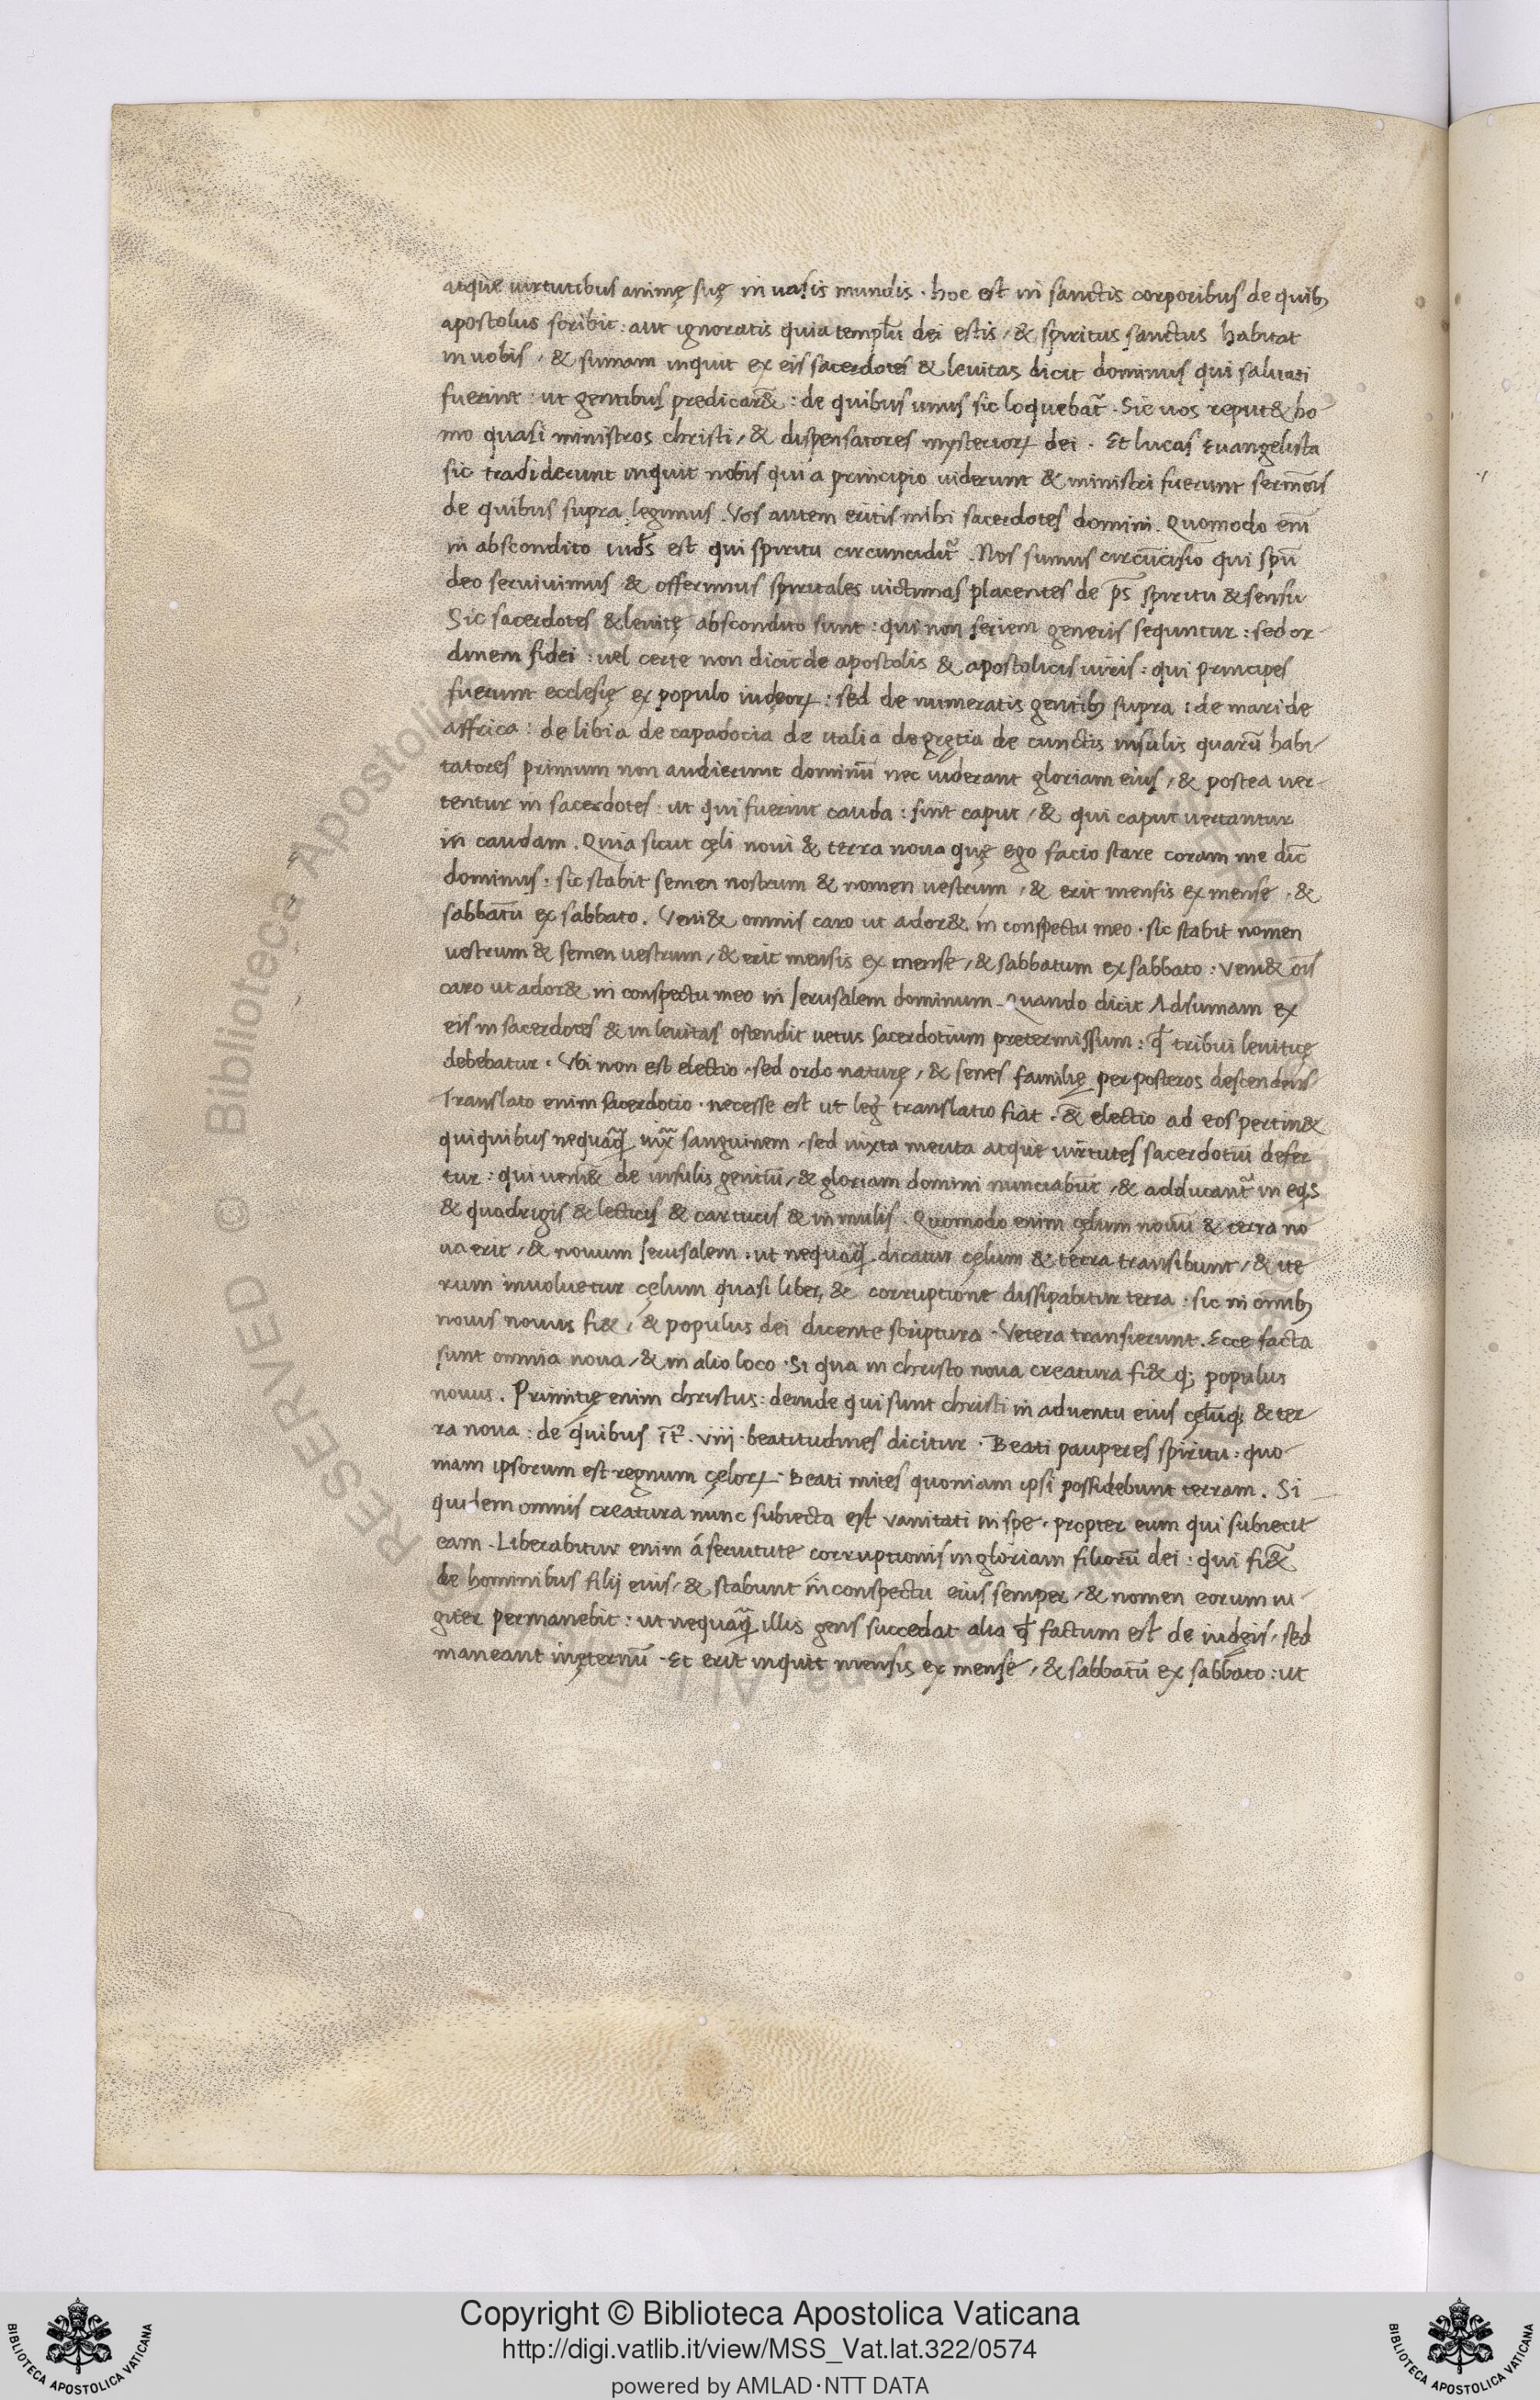 atque uirtutibus animę suę in uasis mundis · hoc est in sanctis corporibus de quib;
apostolus scribit: aut ignoratis quia templū dei estis, & spiritus sanctus habitat
in uobis, & sumam inquit ex eis sacerdotes & leuitas dicit dominus qui saluati
fuerint: ut gentibus predicar&̄: de quibus unus sic loquebat᷑. Sic uos reput& ho-
mo quasi ministros christi, & dispensatores mysterioꝝ dei. Et lucas Euangelista
sic tradiderunt inquit nobis qui a principio uiderunt & ministri fuerunt sermōis
de quibus supra legimus. Vos autem eritis mihi sacerdotes domini. Quomodo em̄
in abscondito iud̄s est qui spiritu circunciditᷣ. Nos sumus circūcisio qui spū
deo seruiuimus & offerimus spiritales uictimas placentes de p̄s spiritu & sensu
Sic sacerdotes & leuitę abscondito sunt: qui non seriem generis sequntur: sed or-
dinem fidei: uel certe non dicit de apostolis & apostolicis uiris: qui principes
fuerunt ecclesię ex populo iudęoꝝ: sed de numeratis gentib; supra: de mari de
affrica: de libia de capadocia de italia de gręcia de cunctis insulis quarū habi-
tatores primum non audierunt dominū nec uiderant gloriam eius, & postea uer-
tentur in sacerdotes: ut qui fuerint cauda: sint caput, & qui caput uertantur
in caudam. Quia sicut cęli noui & terra noua quę ego facio stare coram me dic̄
dominus. sic stabit semen nostrum & nomen uestrum, & erit mensis ex mense, &
sabbatū ex sabbato. Veni& omnis caro ut ador& in conspectu meo. sic stabit nomen
uestrum & semen uestrum, & erit mensis ex mense, & sabbatum ex sabbato: veni& oīs
caro ut ador& in conspectu meo in Ierusalem dominum. Quando dicit Adsumam ex
eis in sacerdotes & in leuitas ostendit uetus sacerdotium pretermissum: qđ tribui leuiticę
debebatur. Vbi non est electio, sed ordo naturę, & senes familię per posteros descendens
Translato enim sacerdotio. necesse est ut leg̃ translatio fiat. & electio ad eos pertin&
qui quibus nequaq̄ iuxͣ sanguinem, sed iuxta merita atque uirtutes sacerdotiū defer
tur: qui ueni& de insulis gentiū, & gloriam domini nunciabūt, & adducantᷣ in eq̄s
& quadrigis & lecticis & carrucis & in mulis. Quomodo enim cęlum nouū & terra no
ua erit, & nouum Ierusalem. ut nequaq̄ dicatur cęlum & terra transibunt, & ite
rum inuoluetur cęlum quasi liber, & corruptione dissipabitur terra: sic in omīb;
nouis nouus fi&, & populus dei dicente scriptura. Vetera transierunt. Ecce facta
sunt omnia noua, & in alio loco. Si qua in christo noua creatura fi& q; populus
nouus. Primitię enim christus: deinde qui sunt christi in aduentu eius cęlūq; & ter
ra noua: de quibus īt᷑. viij. beatitudines dicitur. Beati pauperes spiritu: quo-
niam ipsorum est regnum cęloꝝ. Beati mites quoniam ipsi possidebunt terram. Si
quidem omnis creatura nunc subiecta est vanitati in spe. propter eum qui subiecit
eam. Liberabitur enim á seruitute corruptionis in gloriam filiorū dei: qui fi&̄
de hominibus filij eius, & stabunt in conspectu eius semper, & nomen eorum iu-
giter permanebit: ut nequaq̄ illis gens succedat alia qđ factum est de iudęis, sed
maneant in ęternū. Et erit inquit mensis ex mense, & sabbatū ex sabbato: ut
RESERVED © Biblioteca Apostolica Vaticana
Copyright © Biblioteca Apostolica Vaticana
http://digi.vatlib.it/view/MSS_Vat.lat.322/0574
powered by AMLAD·NTT DATA
BIBLIOTECA APOSTOLICA VATICANA
BIBLIOTECA APOSTOLICA VATICANA